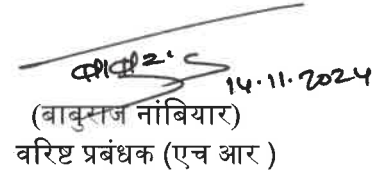 14.11.2024
(बाबुराज नांबियार)
वरिष्ट प्रबंधक (एच आर )